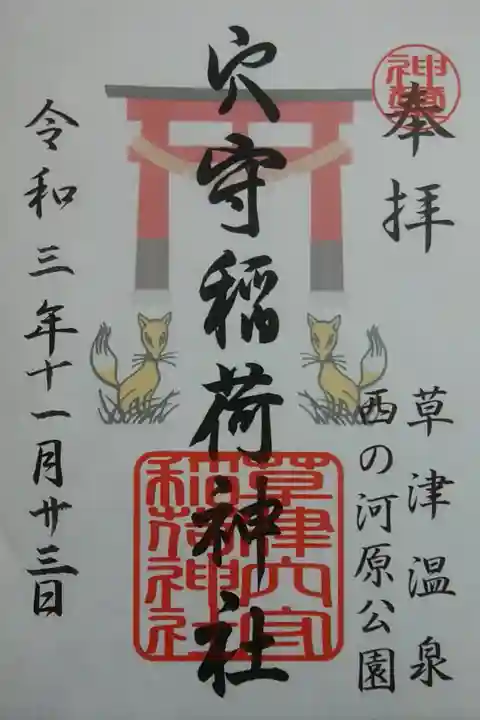 奉拝
草津温泉
西の河原公園
穴守稲荷神社
令和三年十一月廿三日
草津穴守
稲荷神社